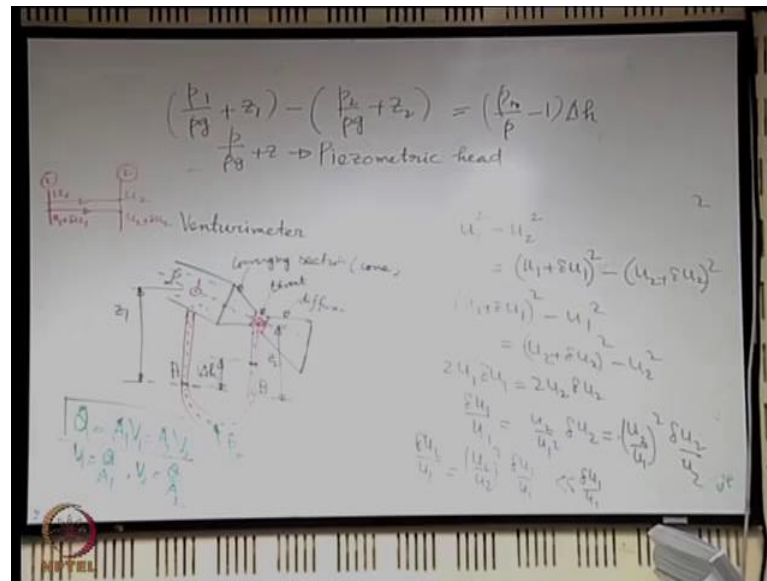 (p₁/ρg + z₁) − (p₂/ρg + z₂) = (ρₘ/ρ − 1)Δh
p/ρg + z → Piezometric head
① ②
u₁ u₂
u₁+δu₁ u₂+δu₂
Venturimeter
Converging section (cone)
throat
z₁
A Δh B z₂
Q = A₁V₁ = A₂V₂
V₁ = Q/A₁, V₂ = Q/A₂
2
u₁² − u₂²
= (u₁+δu₁)² − (u₂+δu₂)²
(u₁+δu₁)² − u₁²
= (u₂+δu₂)² − u₂²
2u₁δu₁ = 2u₂δu₂
δu₁/u₁ = u₂/u₁² δu₂ = (u₂/u₁)² δu₂/u₂
NPTEL